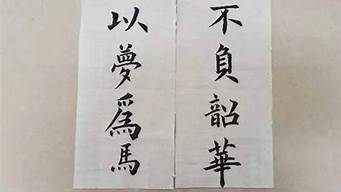 以夢爲馬
不負韶華